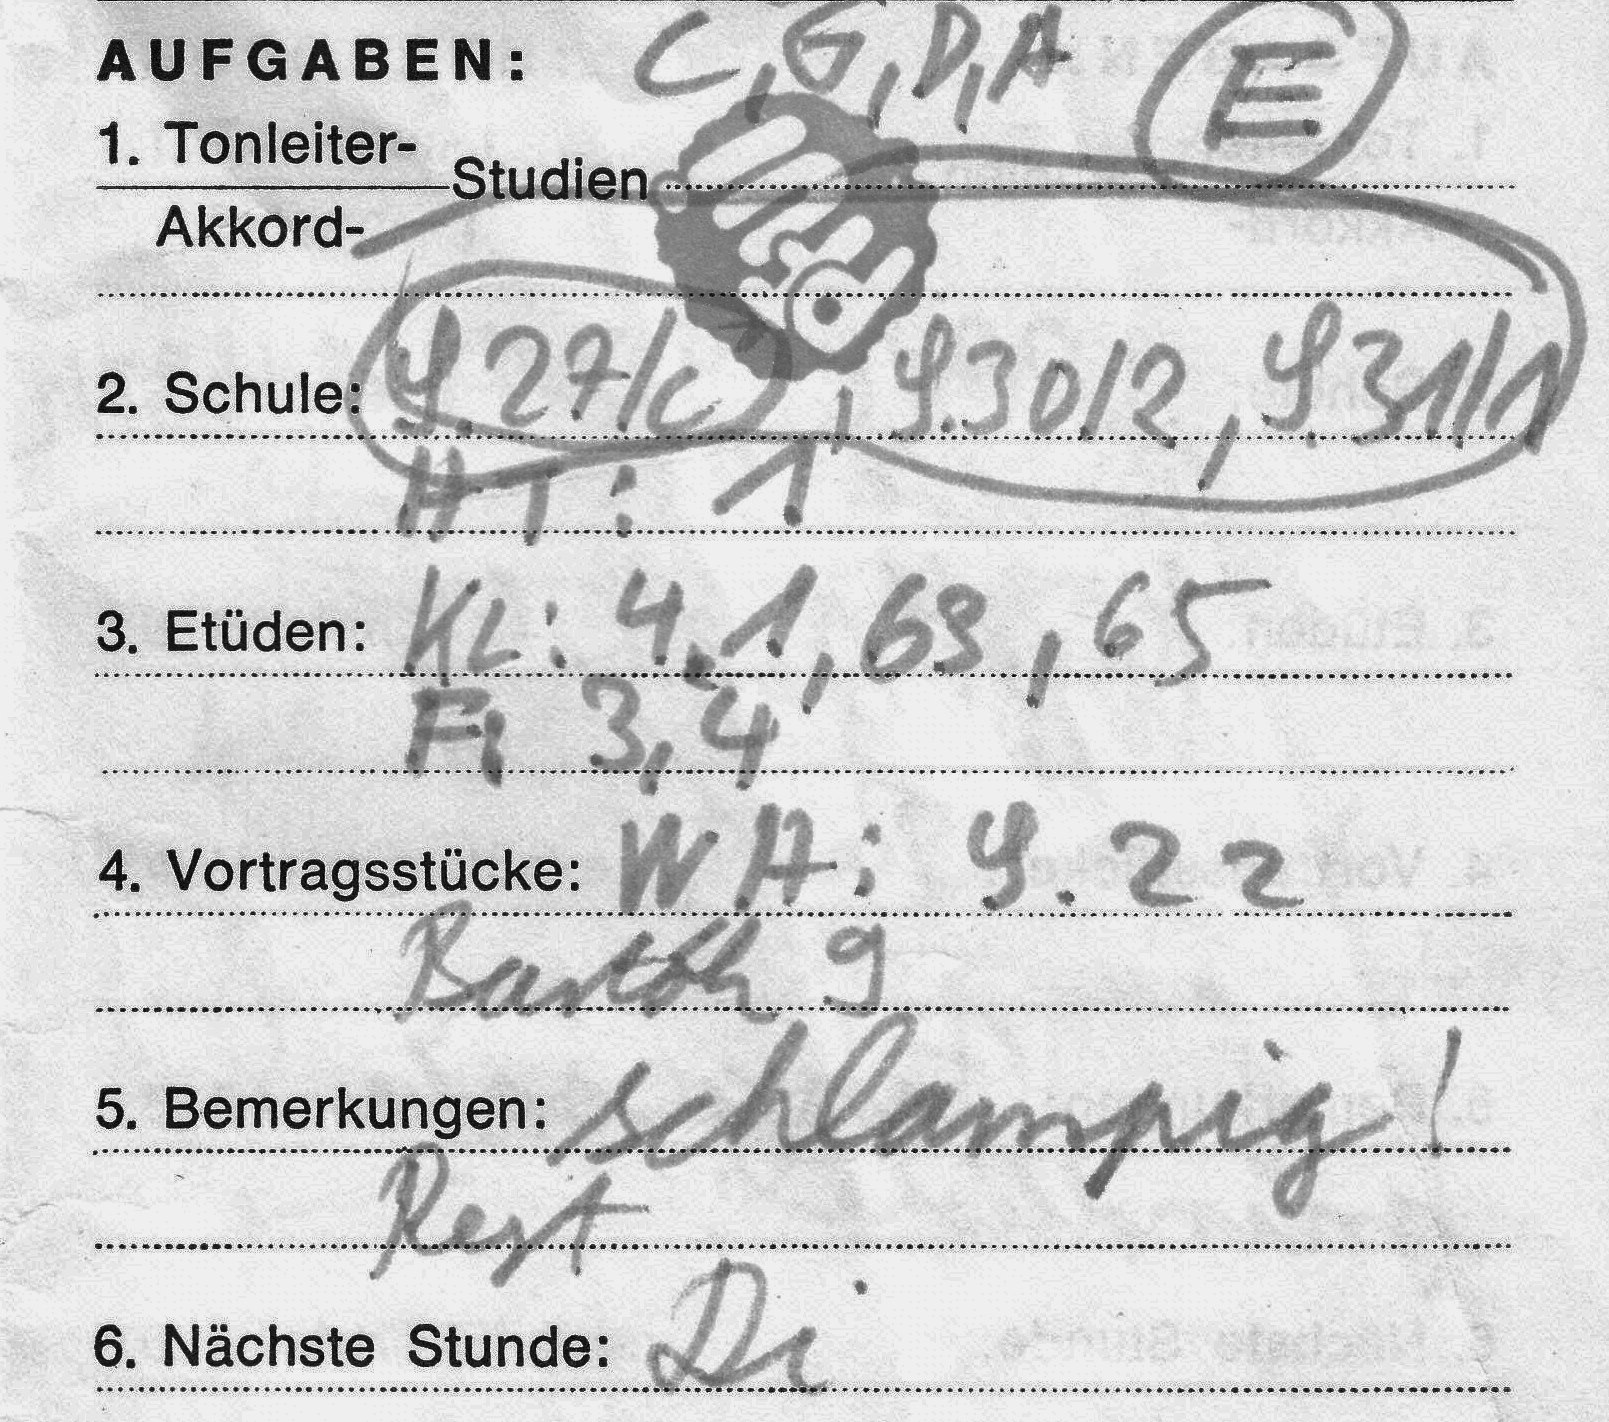 AUFGABEN: C, G, D, A E
1. Tonleiter-
Studien
Akkord-
2. Schule: S. 27/c, S. 30/2, S. 31/1
HT: 1
3. Etüden: KL: 4, 1, 63, 65
Fi 3, 4
4. Vortragsstücke: WH: S. 22
Bartók 9
5. Bemerkungen: schlampig!
Rest
6. Nächste Stunde: Di